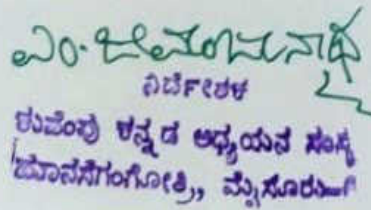 ನಿರ್ದೇಶಕ
ಕುವೆಂಪು ಕನ್ನಡ ಅಧ್ಯಯನ ಸಂಸ್ಥೆ
ಮಾನಸಗಂಗೋತ್ರಿ, ಮೈಸೂರು